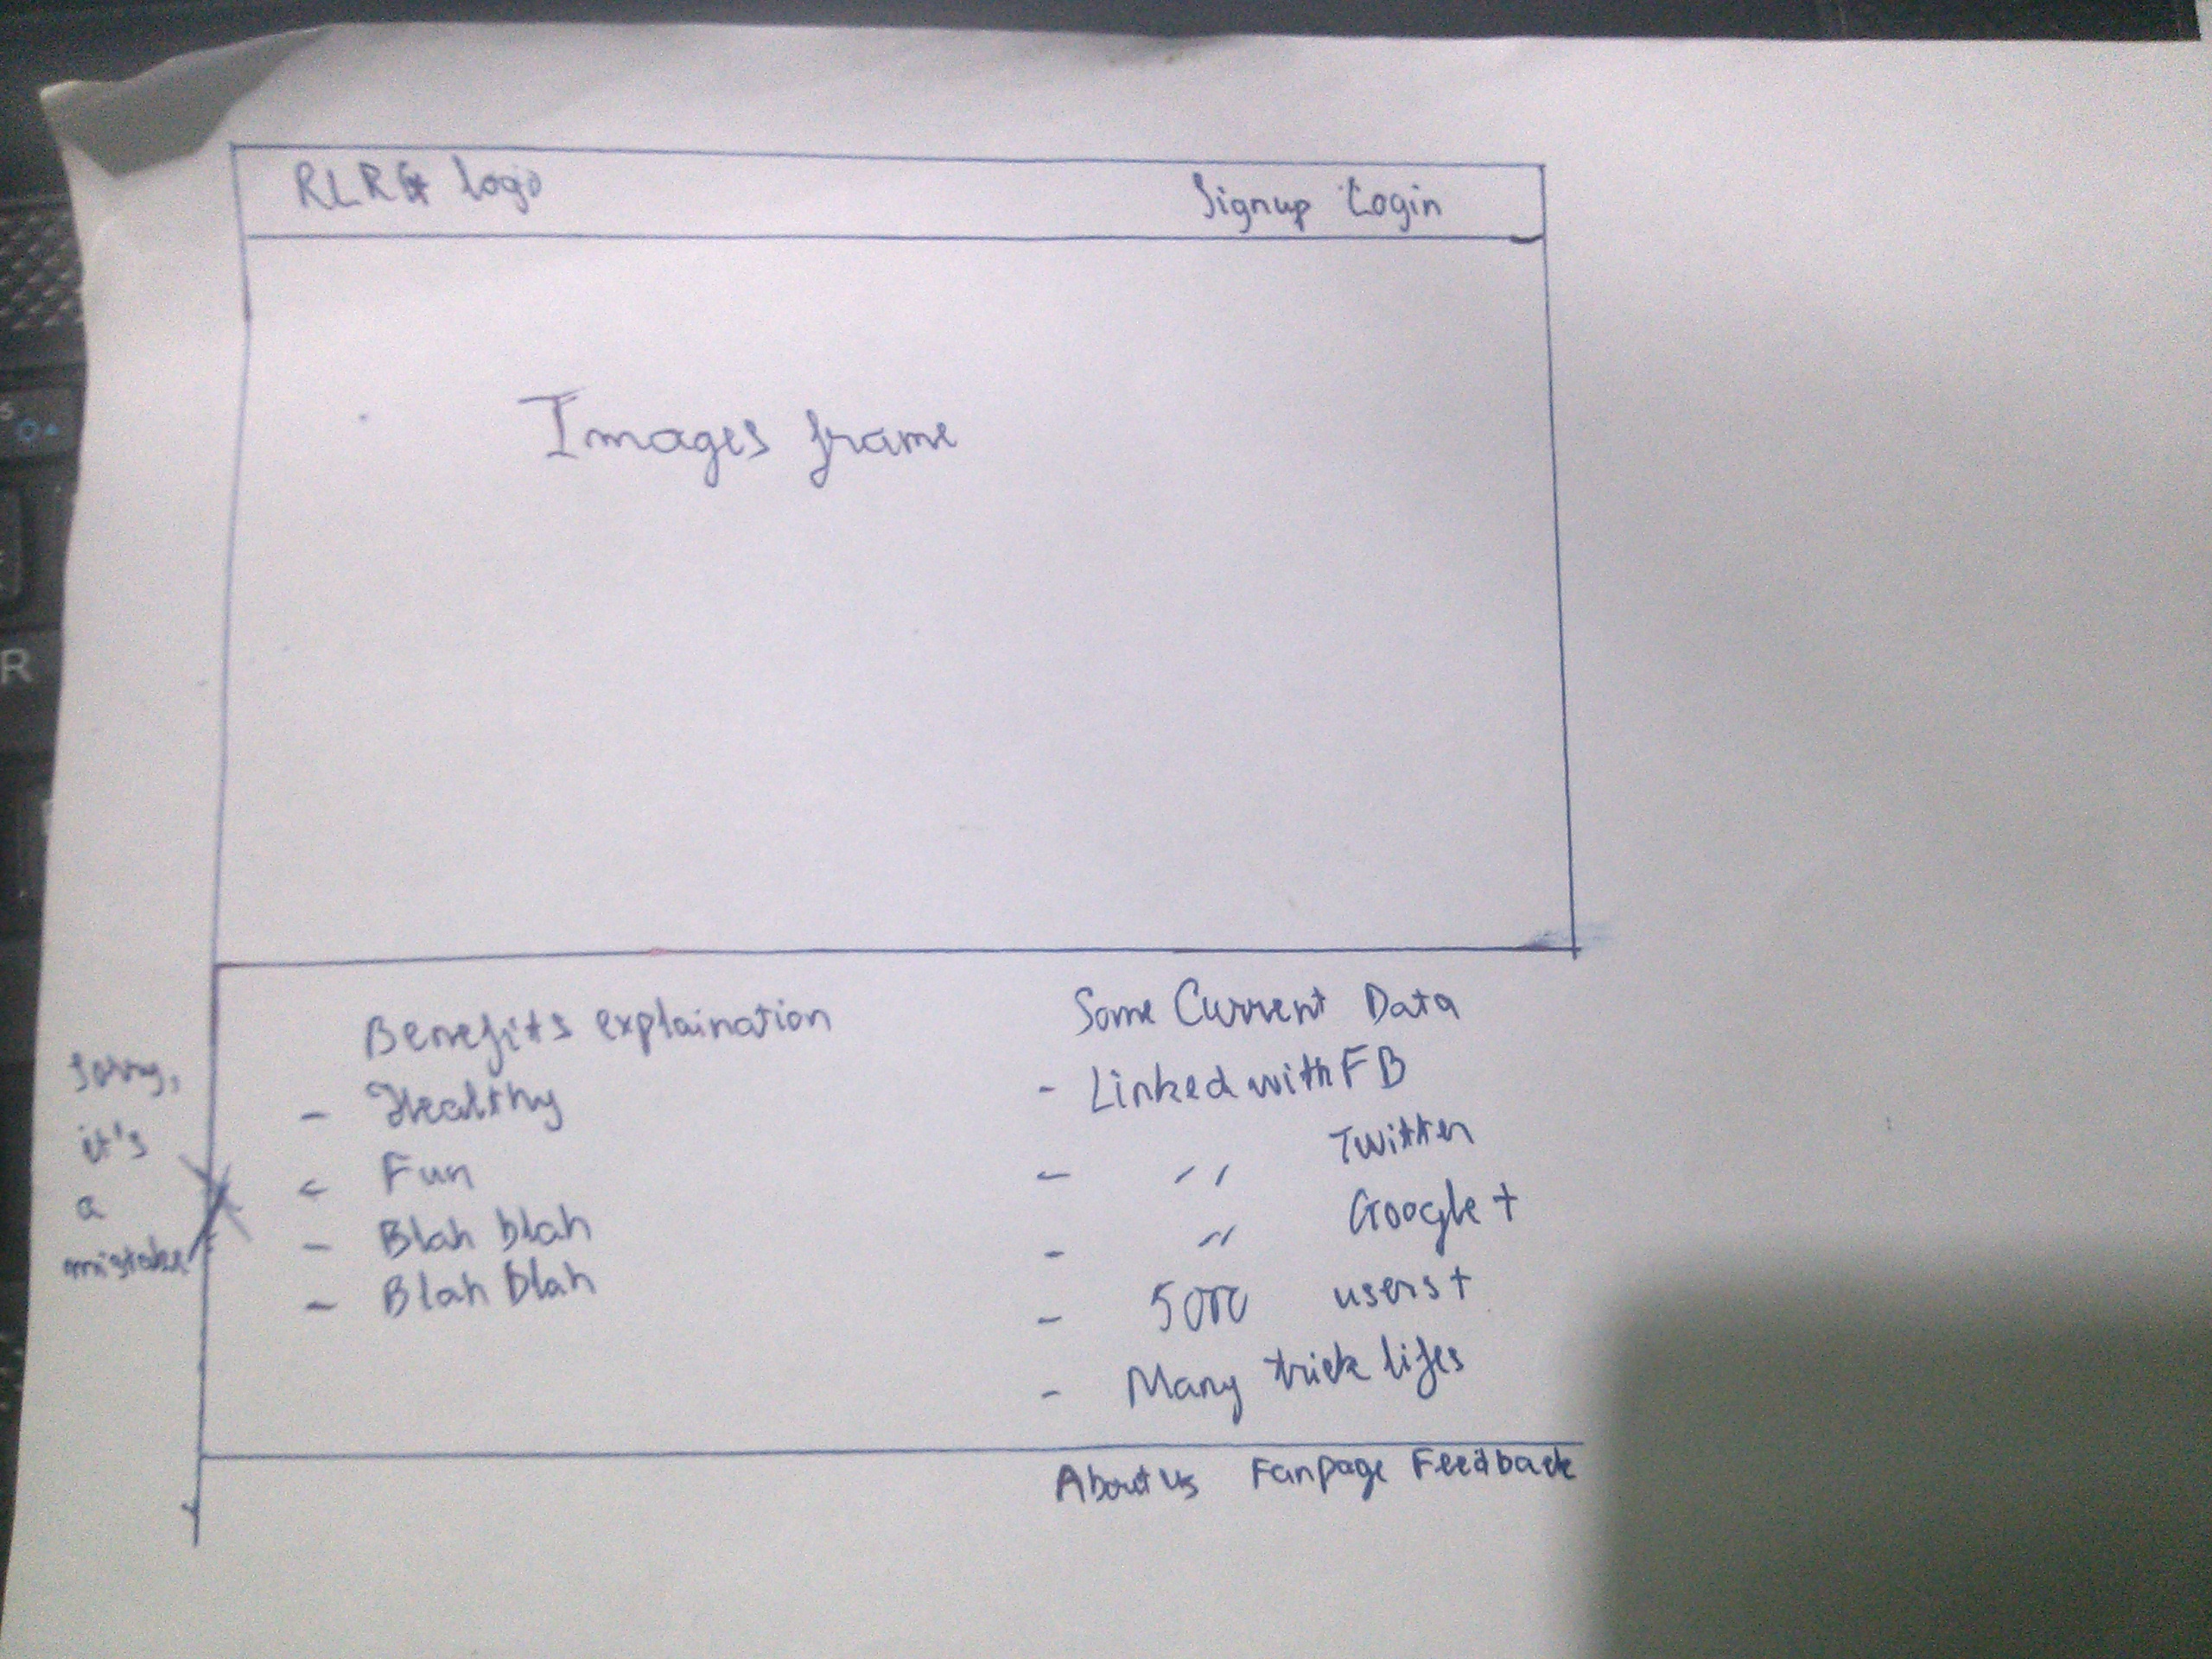 RLRG logo
Signup Login
Images frame
Benefits explaination
- Healthy
- Fun
- Blah blah
- Blah blah
Some Current Data
- Linked with FB
- " Twitter
- " Google +
- 5000 users +
- Many trick lifes
Sorry,
it's
a
mistake
About us Fanpage Feedback
R
S